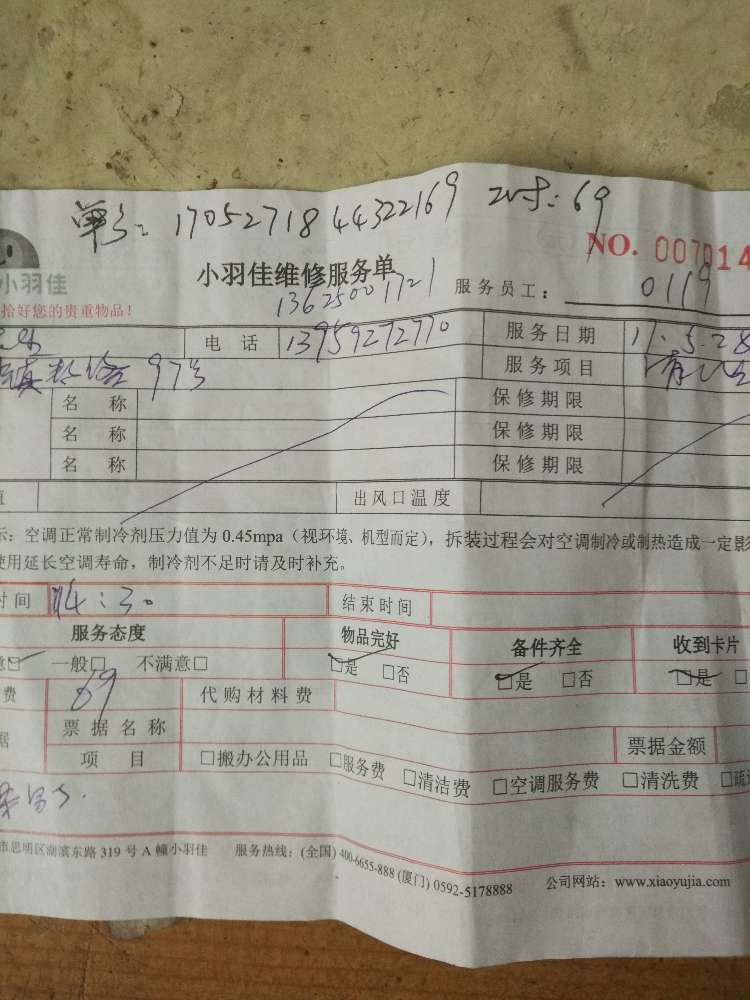 单号: 1705271844322169 69
NO. 007014
小羽佳
小羽佳维修服务单
13625001721
服务员工: 0119
拾好您的贵重物品!
电 话 13959272770 服务日期 17.5.28
97号 服务项目
名 称 保修期限
名 称 保修期限
名 称 保修期限
值 出风口温度
示: 空调正常制冷剂压力值为 0.45mpa (视环境、机型而定), 拆装过程会对空调制冷或制热造成一定影
使用延长空调寿命, 制冷剂不足时请及时补充。
时间 14:30 结束时间
服务态度 物品完好 备件齐全 收到卡片
☑ 一般□ 不满意□ ☑是 □否 ☑是 □否 ☑是 □
费 69 代购材料费
据 票据名称 票据金额
项 目 □搬办公用品 □服务费 □清洁费 □空调服务费 □清洗费 □疏
市思明区湖滨东路 319 号 A 幢小羽佳 服务热线: (全国) 400-6655-888 (厦门) 0592-5178888 公司网站: www.xiaoyujia.com